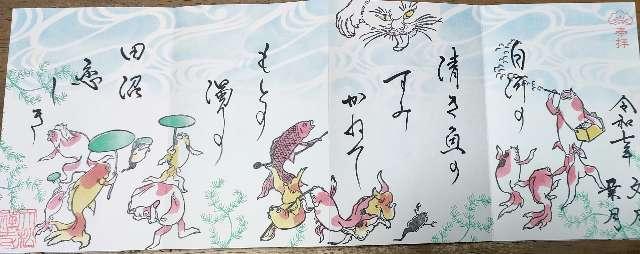 奉拝
令和
葉月
白河の
清き魚の
すみ
かねて
もとの
濁りの
田沼
恋
しき